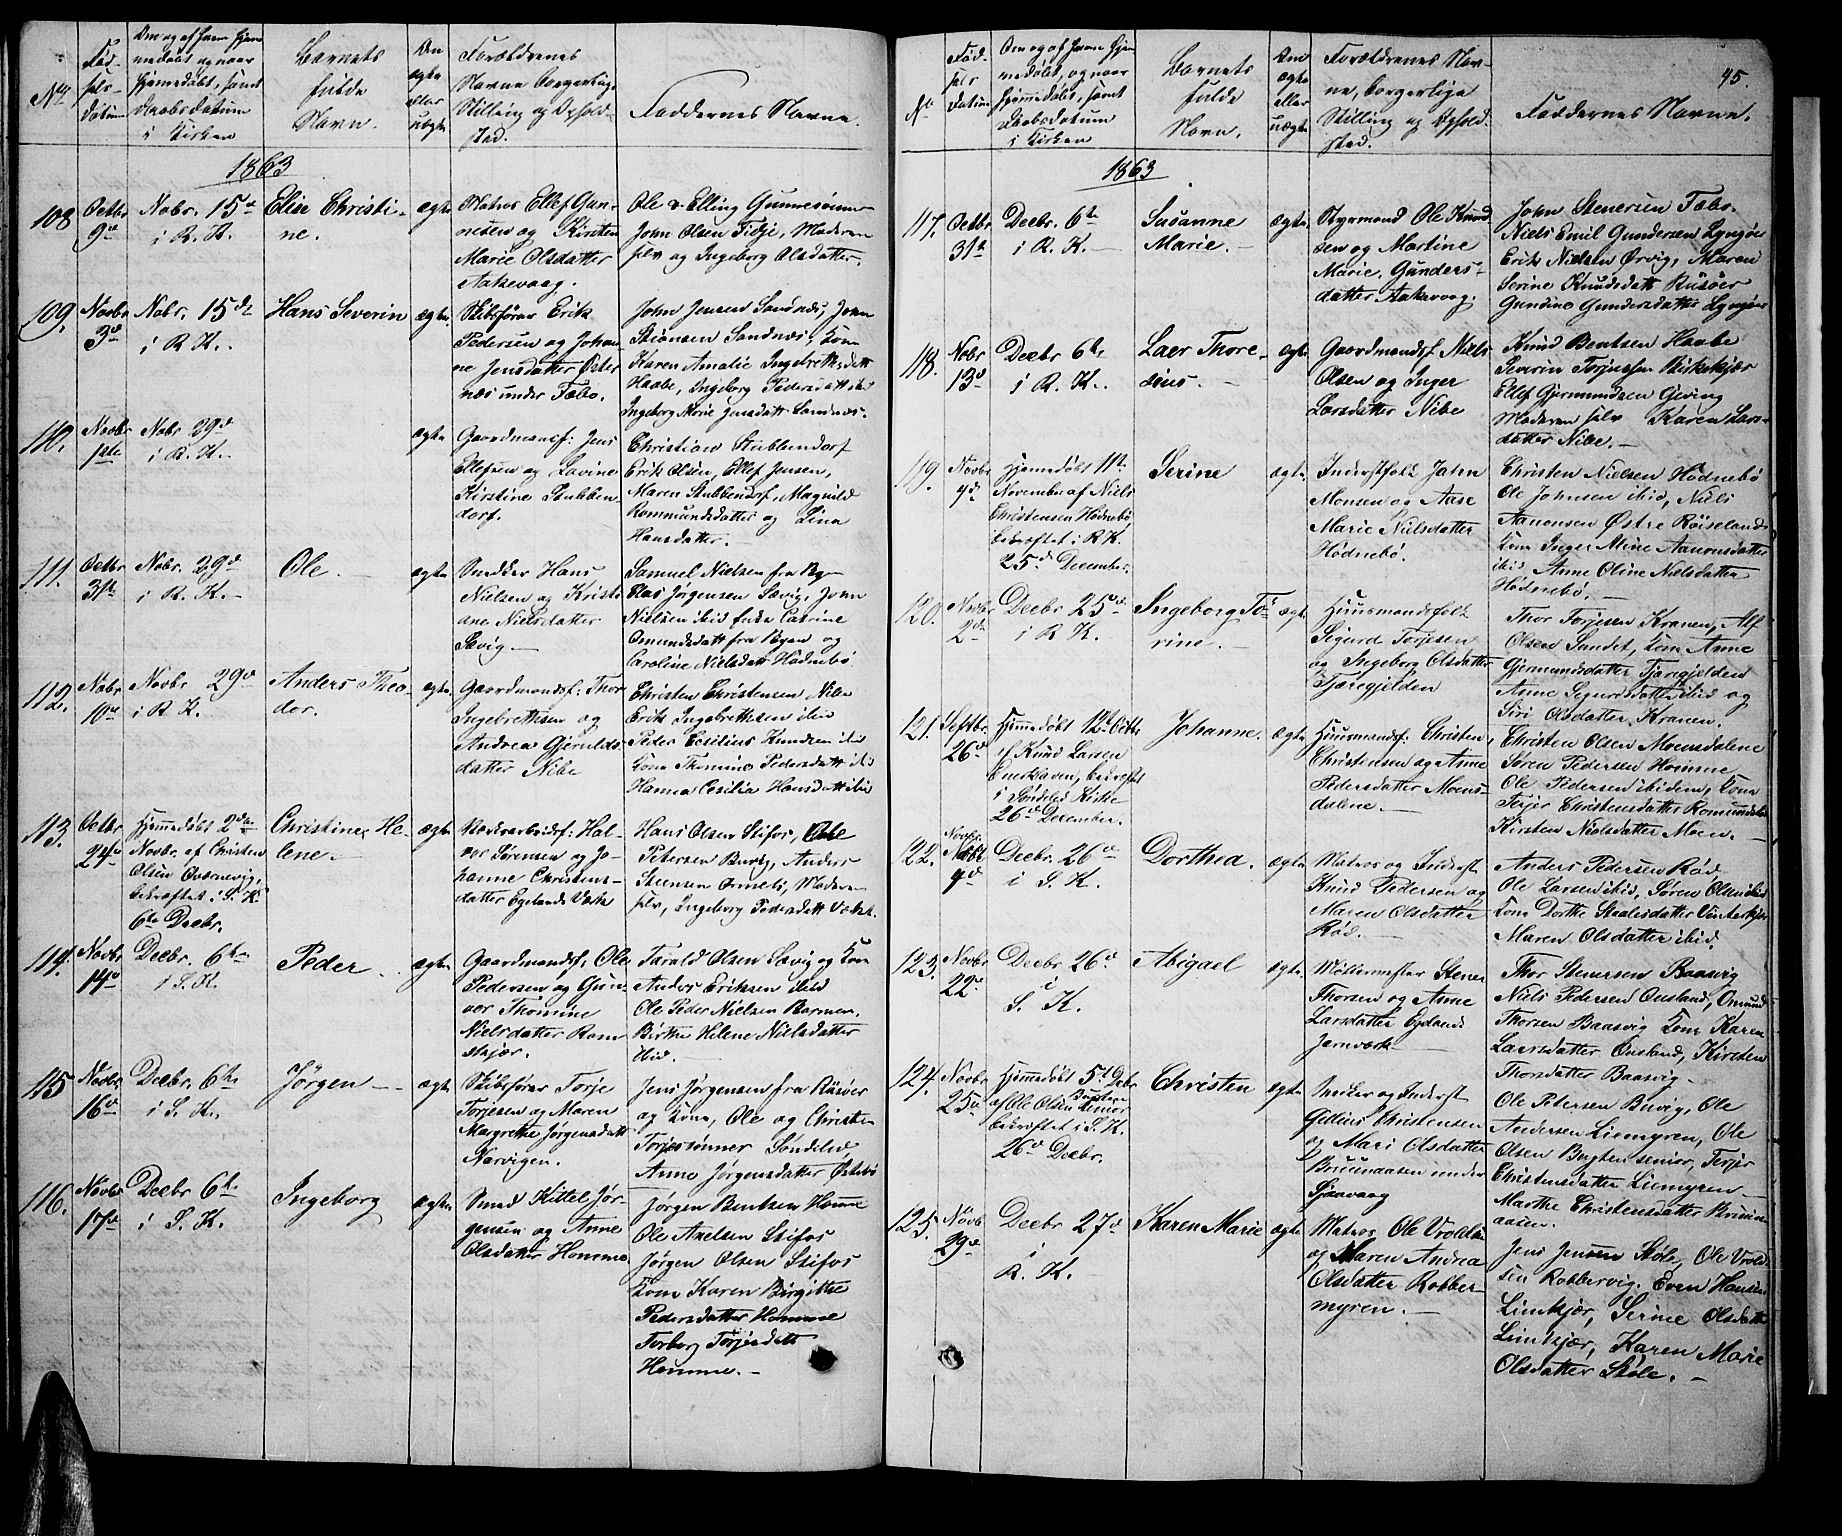 No.
Fød-
sels-
datum
Om og af hvem hjem-
medøbt og naar
hjemmedøbt, samt
Daabsdatum
i Kirken
Barnets
fulde
Navn.
Den
ægte
eller
uægte
Forældrenes
Navne Borgerlige
Stilling og Ophold-
sted.
Faddernes Navne.
1863
108
Octbr
9de
Nobr. 15de
i R. K.
Elise Christi-
ne.
ægte
Matros Ellef Gun-
nesen og Kirsten
Marie Olsdatter
Aakevaag.
Ole & Elling Gunnesønner
John Olsen Tidje, Moderen
selv og Ingeborg Olsdatter.
109.
Novbr
3de
Nobr. 15de
i R K.
Hans Severin
ægte
Skibsfører Erik
Pedersen og Johan-
ne Jensdatter Øster
næs under Fæbo.
John Jensen Sandnæs, John
Sandnæs, Kone
Karen Amalie Ingebrethsdatt
Haabe, Ingeborg Pedersdatt ibid
Ingeborg Marie Jensdatt Sandnæs.
110.
Novbr
1ste
Nobr 29de
i R. K.
ægte
Gaardmandsf: Jens
Ellefsen og Lovine
Kirstine Stubben
dorf.
Christian Stubbendorf
Erik Olsen, Ellef Jensen,
Maren Stubbendorf, Magnild
Romundsdatter og Lina
Hansdatter.
111.
Octbr
31te
Nobr. 29de
i R. K.
Ole.
ægte
Snedker Hans
Nielsen og Kristi
ane Nielsdatter
Sævig.
Samuel Nielsen fra Byen
Clas Jørgensen Sævig, John
Nielsen ibid Enke Catrine
Omundsdatt fra Byen og
Caroline Nielsdatt Hødnebø
112.
Nobr
10de
Novbr 29de
i R K.
Anders Theo-
dor.
ægte
Gaardmandsf: Thor
Ingebrethsen og
Andrea Gjerulds
datter Nibe
Christen Christensen Nibe
Erik Ingebrethsen ibid
Peder Cecilius Knudsen ibid
Kone Thomine Pedersdatt ibid
Hanna Cecilia Hansdatt ibid
113.
Octbr
24de
Hjemmedøbt 2den
Novbr. af Christen
Olsen Qværnevig,
bekræftet i S. K.
6te Decbr.
Christine He-
lene.
ægte
Værksarbeidsf: Hal-
vor Sørensen og Jo-
hanne Christens-
datter Egelands Værk
Hans Olsen Stifos, Ole
Petersen Berg, Anders
Steensen Ormeli, Moderen
selv, Ingeborg Pedersdatt Værket.
114.
Novbr
14de
Decbr. 6te
i S. K.
Peder
ægte
Gaardmandsf: Ole
Pedersen og Gun-
vor Thomine
Nielsdatter Rom
skjær.
Tarald Olsen Sævig og Kone
Anders Eriksen ibid
Ole Peder Nielsen Barmen,
Birthe Helene Nielsdatter
ibid.
115
Novbr.
16de
Decbr. 6te
i S. K.
Jørgen
ægte
Skibsfører Torje
Torjesen og Maren
Margrethe Jørgensdatt
Narvigen.
Jens Jørgensen fra Risøer
og Kone, Ole og Christen
Torjessønner Søndeled,
Anne Jørgensdatter Østebø
116.
Novbr
17de
Decbr 6te
i S. K.
Ingeborg
ægte
Smed Kittel Jør-
gensen og Anne
Olsdatter Homme
Jørgen Bentsen Homme
Ole Axelsen Stifos
Jørgen Olsen Stifos
Kone Karen Birgitte
Pedersdatter Homme
Torborg Torjesdatt
Homme.
45.
No
Fød-
sels
datum
Om og af hvem hjem
medøbt, og naar
hjemmedøbt, samt
Daabsdatum
i Kirken
Barnets
fulde
Navn.
Om
ægte
eller
uægte
Forældrenes Nav-
ne, borgerlige
Stilling og Ophold-
sted.
Faddernes Navne.
1863
117.
Octbr
31te
Decbr. 6te
i R. K.
Susanne
Marie.
ægte
Styrmand Ole Knud
sen og Martine
Marie Gunders-
datter Aakevaag.
John Stenersen Fæbo.
Niels Emil Gundersen Lyngøer
Erik Nielsen Ørvig, Maren
Serine Knudsdatt Risøer
Gundine Gundersdatter Lyngøer
118.
Nobr
13de
Decbr 6te
i R. K.
Laer Thore-
sius.
ægte
Gaardmandsf. Niels
Olsen og Inger
Larsdatter Nibe
Knud Bentsen Haabe
Severin Torjussen Kirkekjær
Ellef Gjermundsen Geving
Moderen selv Karen Lars-
datter Nibe.
119.
Novbr
4de
Hjemmedøbt 11te
November af Niels
Christensen Hødnebø,
bekræftet i R K.
25de December.
Serine
ægte
Inderstfolk John
Monsen og Aase
Marie Nielsdatter
Hødnebø.
Christen Nielsen Hødnebø
Ole Johnsen ibid, Niels
Aanonsen Østre Røiseland
Kone Inger Mine Aanonsdatter
ibid Anne Oline Nielsdatter
Hødnebø.
120.
Novbr
2de
Decbr 25de
i R K.
Ingeborg To-
rine.
ægte
Huusmandsfolk
Sigurd Torjesen
og Ingeborg Olsdatter
Fjæregjelden
Thor Torjesen Kranen, Alf
Olsen Sandet, Kone Anne
Gjermundsdatter Fjæregjelden
Anne Sigurdsdatter ibid og
Siri Olsdatter Kranen.
121.
Septbr.
26de
Hjemmedøbt 12te Octb
af Knud Larsen
Enerhaven, bekræftet
i Søndeled Kirke
26de December.
Johanne.
ægte
Huusmandsf: Christen
Christensen og Anne
Pedersdatter Moens-
dalene.
Christen Olsen Moensdalene
Søren Pedersen Homme
Ole Pedersen ibidem, Kone
Terjer Christensdatter Romundsbø
Kirsten Nielsdatter Moen.
122.
Novbr.
9de
Decbr. 26de
i S. K.
Dorthea.
ægte
Matros og Inderst
Knud Pedersen og
Maren Olsdatter
Rød.
Anders Pedersen Rød
Ole Larsen ibid, Søren Olsen ibid
Kone Dorthe Staalesdatter Vinterkjær
Maren Olsdatter ibid.
123.
Novbr.
22de
Decbr. 26de
i
S. K.
Abigael
ægte
Møllermester Stener
Thorsen og Anne
Larsdatter Egelands
Jernværk.
Thor Stenersen Baasvig
Niels Pedersen Ousland, Omund
Thorsen Baasvig Kone Karen
Laersdatter Ousland, Kirsten
Thorsdatter Baasvig.
124.
Novbr.
25de
Hjemmedøbt 5te Debr
af Ole Olsen Bugten
senior
bekræftet i S. K.
26de Decbr.
Christen
ægte
Snedker og Inderst
Gelius Christensen
og Mari Olsdatter
Bruunaasen under
Sjaavaag
Ole Petersen Buvig, Ole
Andersen Liemyren, Ole
Olsen Bugten senior, Terjer
Christensdatter Liemyren
Marthe Christensdatter Bruun-
aasen.
125.
Novb.
29de
Decbr 27de
i
R. K.
Karen Marie
ægte
Matros Ole Vroldsen
og Maren Andrea
Olsdatter Robber-
myren.
Jens Jensen Støle, Ole Vrold
sen Robbervig. Even Hansen
Lindkjær, Serine Olsdatt
Lindkjær, Karen Marie
Olsdatter Støle.